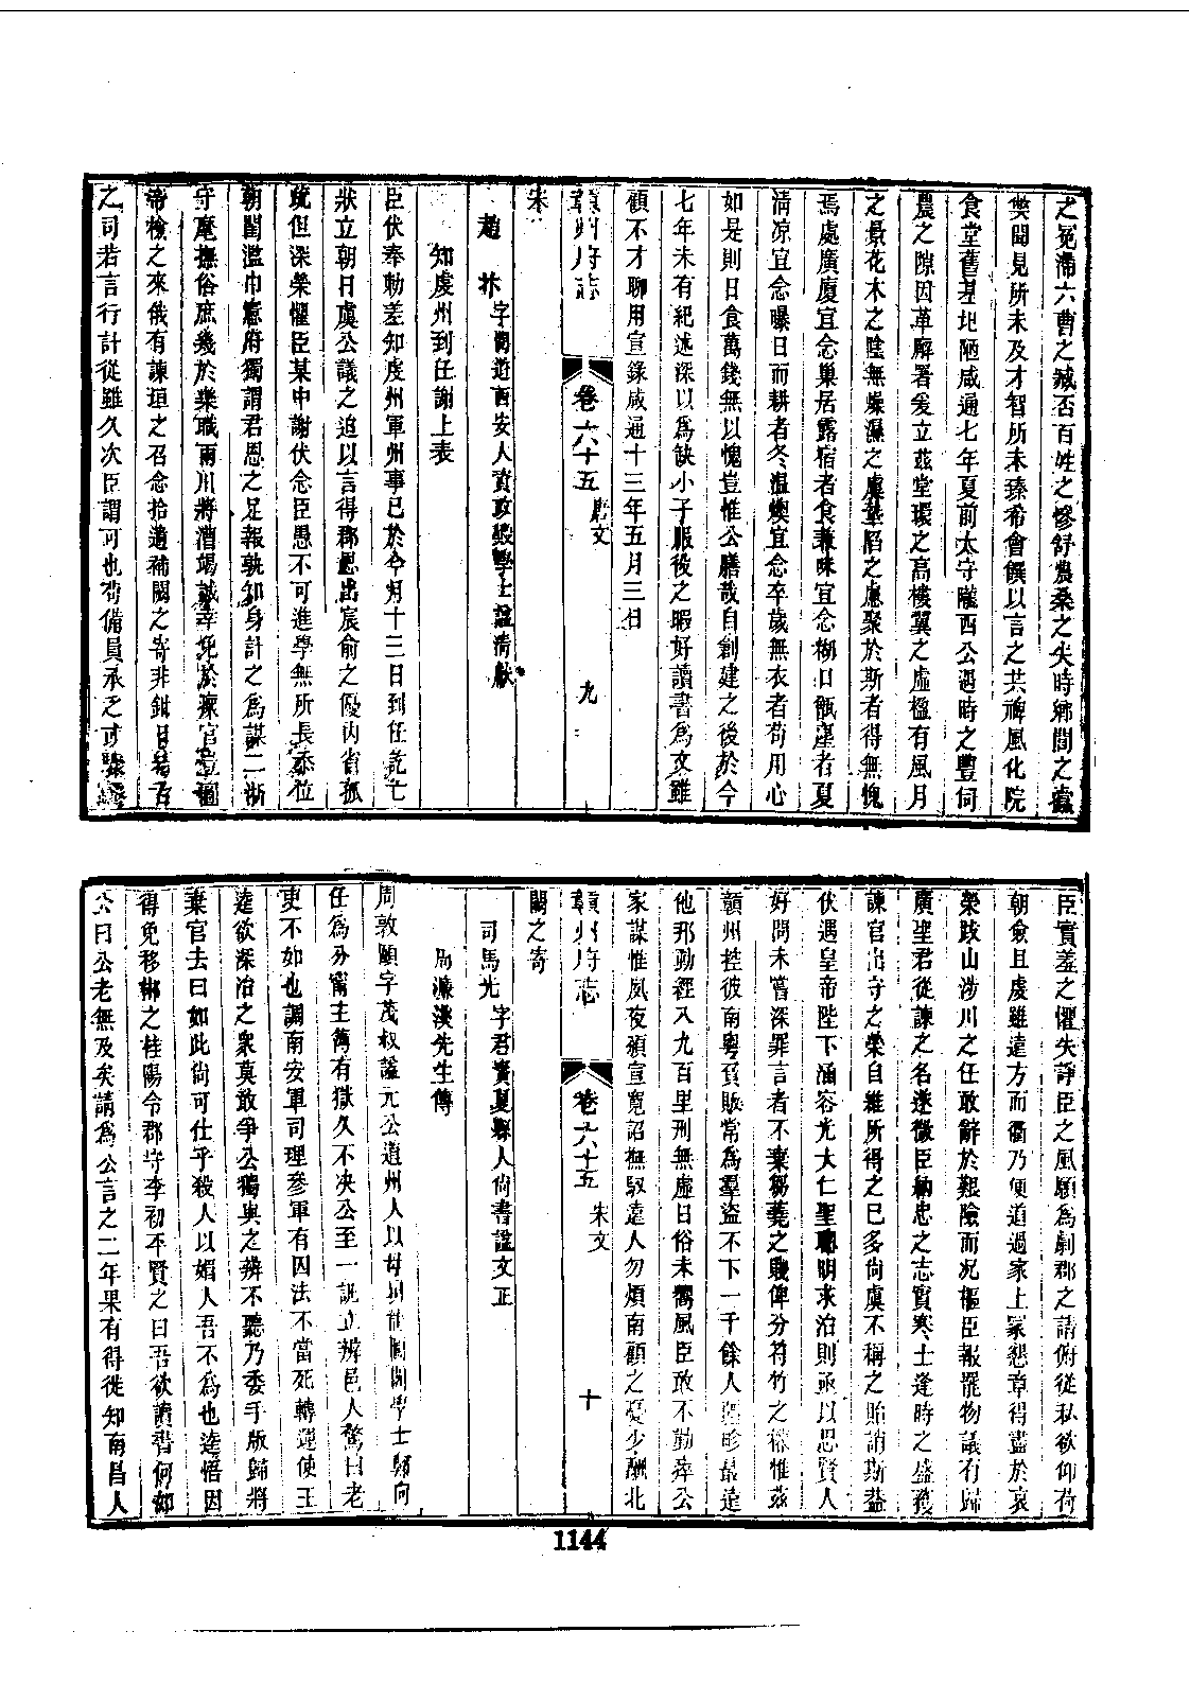 之冤滯六曹之臧否百姓之慘舒農桑之失時鄉閭之
獘聞見所未及才智所未臻希會饌以言之共裨風化院
食堂舊基圯陋咸通七年夏前太守隴西公遇時之豐伺
農之隙因革廨署爰立茲堂環之高樓翼之虛楹有風月
之景花木之陰無燥濕之虞墊陷之慮聚於斯者得無愧
焉處廣廈宜念巢居露宿者食兼味宜念糊口甑窪者夏
清凉宜念曝日而耕者冬溫燠宜念卒歲無衣者苟用心
如是則日食萬錢無以愧豈惟公膳哉自創建之後於今
七年未有紀述深以為缺小子服役之暇好讀書為文雖
顧不才聊用宣錄咸通十三年五月三日
贛州府志
卷六十五 唐文
九
宋
趙抃 字閱道西安人資政殿學士諡清獻
知虔州到任謝上表
臣伏奉勅差知虔州軍州事已於今月十三日到任訖亡
狀立朝日虞公議之迫以言得郡忽出宸俞之優內省孤
疏但深榮懼臣某中謝伏念臣愚不可進學無所長忝位
朝閨濫巾憲府獨謂君恩之足報孰知身計之為謀二浙
守麾撫俗庶幾於樂職兩川將漕竭誠幸免於瘝官豈
帝檢之來俄有諫垣之召念拾遺補闕之寄非鉗口結舌
之司若言行計從雖久次臣謂可也苟備員承乏
臣實羞之懼失諍臣之風願為劇郡之請俯從私欲仰荷
朝僉且虔雖遠方而衢乃便道過家上冢懇章得盡於哀
榮跋山涉川之任敢辭於艱險而况樞臣報罷物議有歸
廣聖君從諫之名遂微臣納忠之志實寒士逢時之盛獲
諫官出守之榮自雖所得之已多尚虞不稱之貽誚斯蓋
伏遇皇帝陛下涵容光大仁聖聰明求治則亟以思賢人
好問未嘗深罪言者不棄芻蕘之賤俾分符竹之權惟茲
贛州控彼南粵貢賦常為羣盜不下一千餘人封畛最遠
他邦動經八九百里刑無虛日俗未嚮風臣敢不勤瘁公
家謀惟夙夜頒宣寬詔撫馭遠人勿煩南顧之憂少酬北
贛州府志
卷六十五 宋文
十
闕之寄
司馬光 字君實夏縣人尚書諡文正
周濂溪先生傳
周敦頤字茂叔諡元公道州人以母舅龍圖閣學士鄭向
任為分寗主簿有獄久不決公至一訊立辨邑人驚曰老
吏不如也調南安軍司理參軍有囚法不當死轉運使王
逵欲深治之衆莫敢爭公獨與之辨不聽乃委手版歸將
棄官去曰如此尚可仕乎殺人以媚人吾不為也逵悟因
得免移郴之桂陽令郡守李初平賢之曰吾欲讀書何如
公曰公老無及矣請為公言之二年果有得徙知南昌人
1144